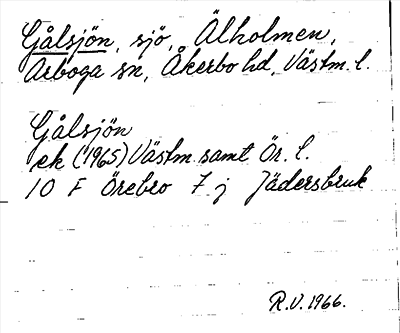 Gålsjön, sjö, Älholmen,
Arboga sn, Åkerbo hd, Västm. l.
Gålsjön
ek (1965) Västm. samt Ör. l.
10 F Örebro 7 j Jädersbruk
R.V. 1966.